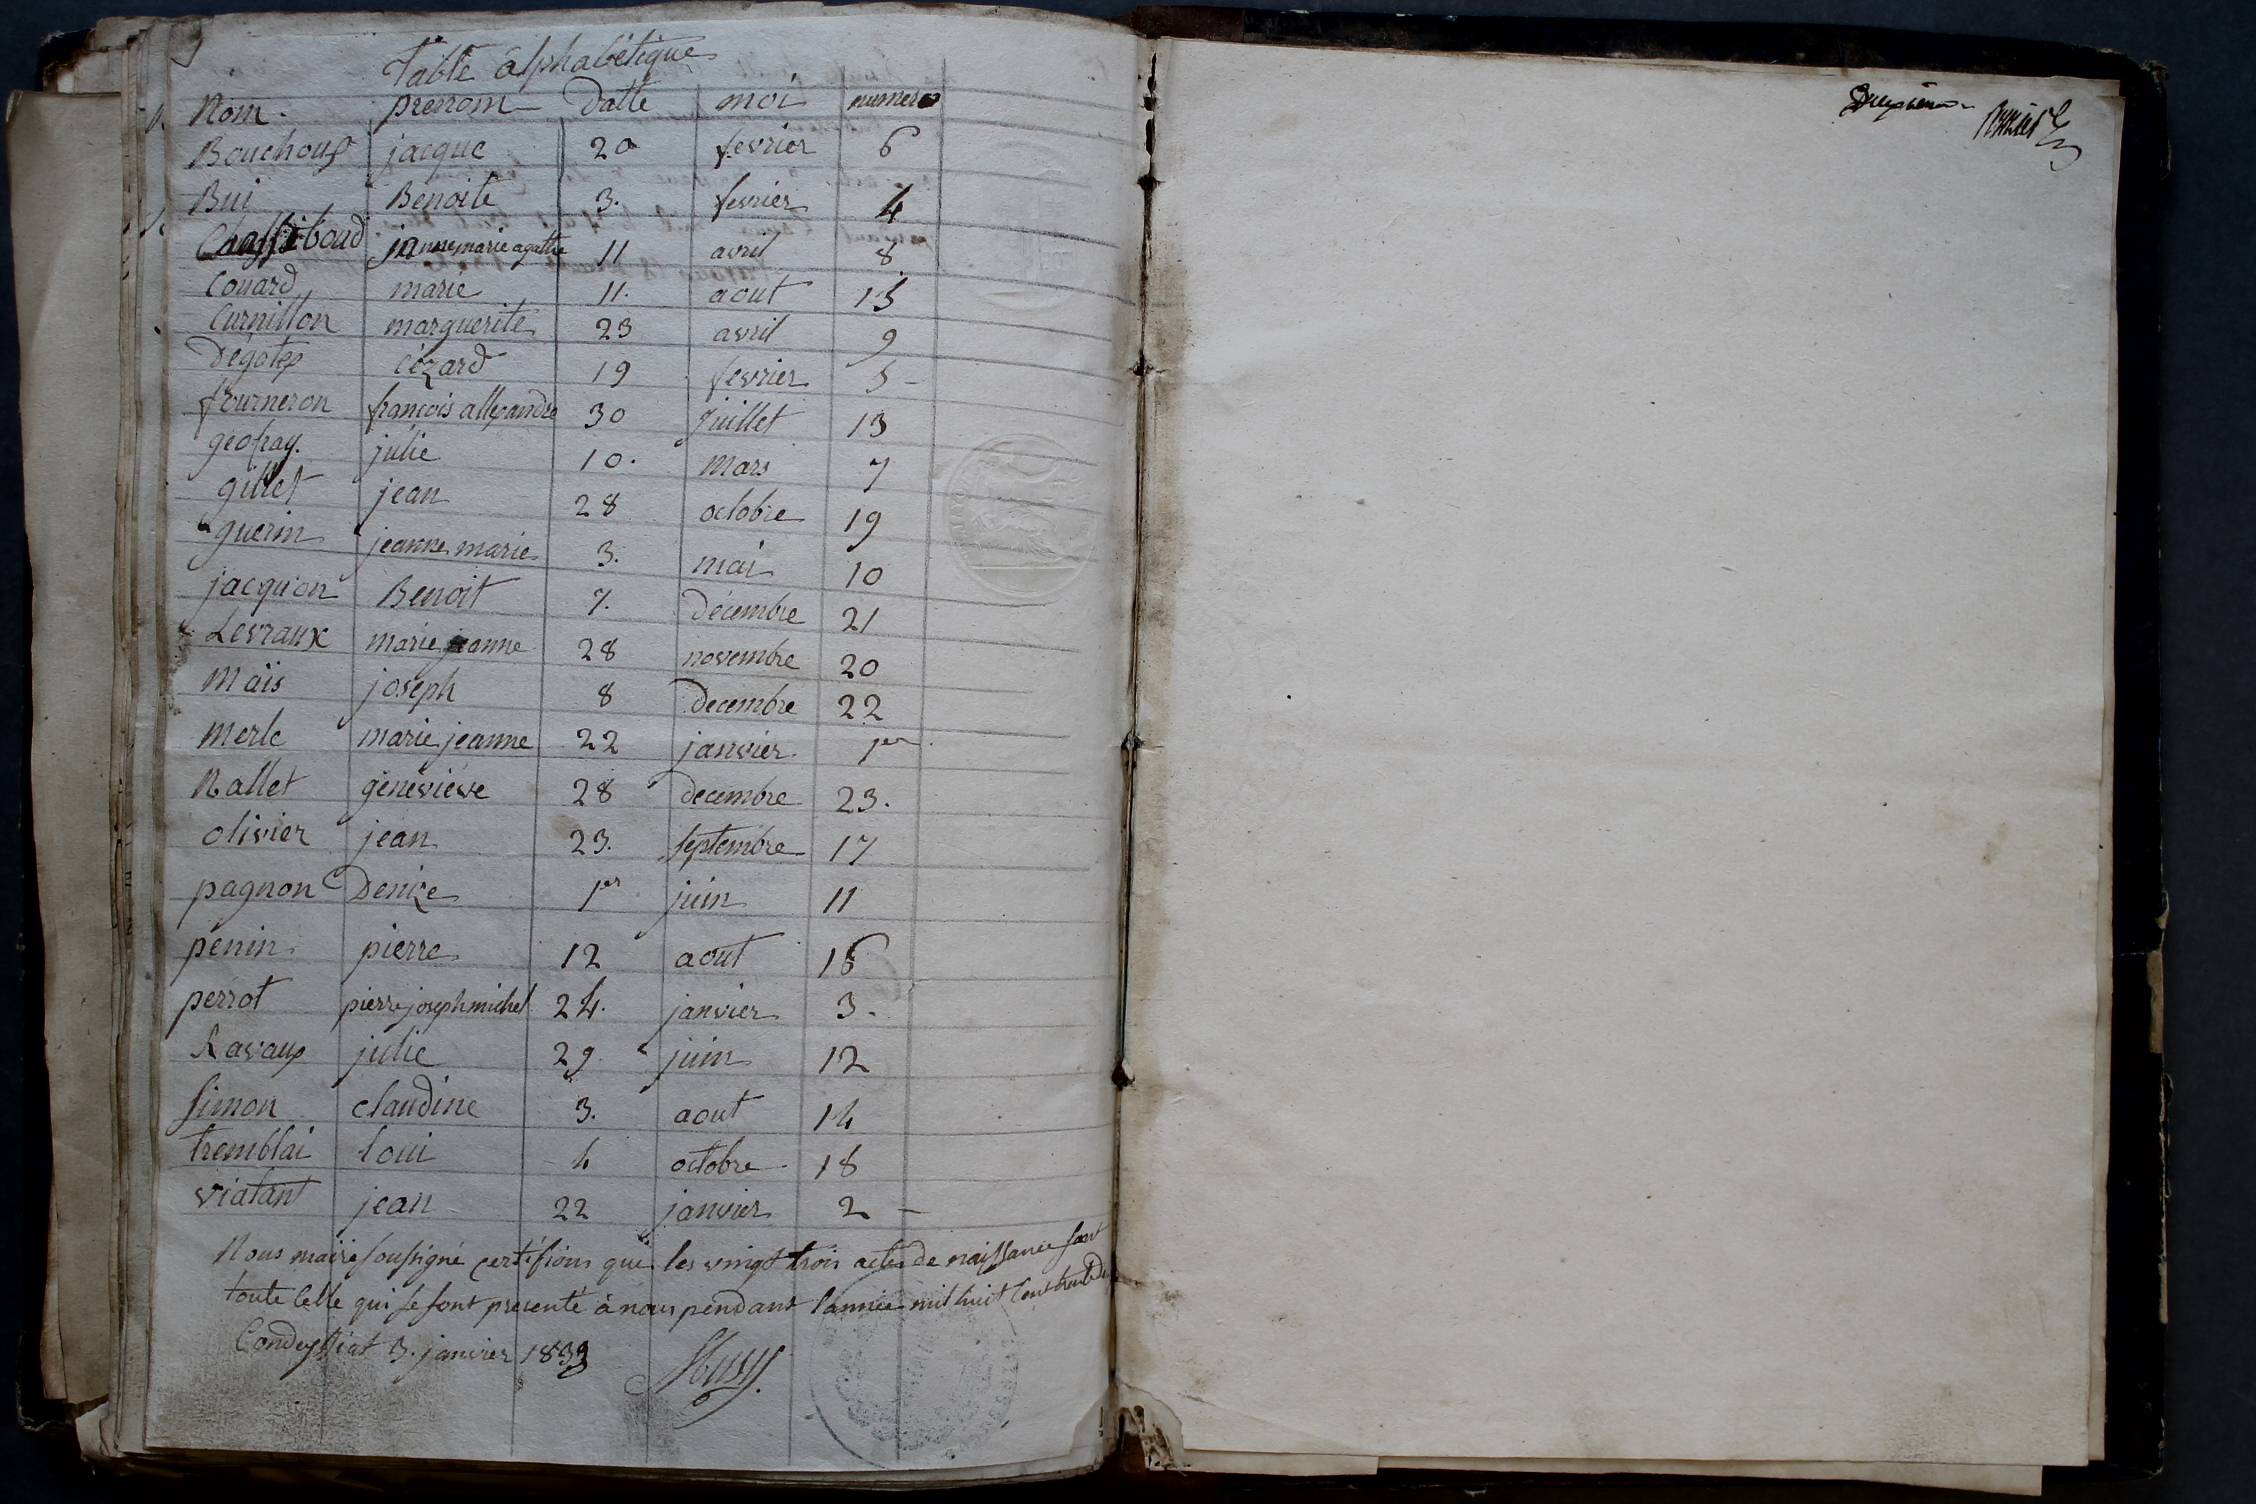 Table alphabétique
Nom. prenom Datte moi numero
Bouchoux jacque 20 fevrier 6
Bui Benoite 3. fevrier 4
Chassiboud jannemarie agathe 11 avril 8
Couard marie 11. aout 15
Curnillon marguerite 23 avril 9
Dégotex Cézard 19 fevrier 5
fourneron francois allexandre 30 Juillet 13
geofray. julie 10. Mars 7
gillet jean 28 octobre 19
guerin jeanne marie 3. mai 10
jacquon Benoit 7. décembre 21
Levraux marie jeanne 28 novembre 20
Maïs joseph 8 decembre 22
Merle marie jeanne 22 janvier 1er
Nallet géneviéve 28 decembre 23.
olivier jean 23. septembre 17
pagnon Denize 1er juin 11
penin pierre 12 aout 16
perrot pierre joseph michel 24. janvier 3.
Ravaux julie 29 juin 12
Simon claudine 3. aout 14
tremblai loui 4 octobre 18
viatant jean 22 janvier 2
Nous maire soussigné certifions que les vingt trois actes de naissance sont
toute celle qui se sont presenté à nous pendant l'année mil huit cent trente
Condeyssiat 3. janvier 1833